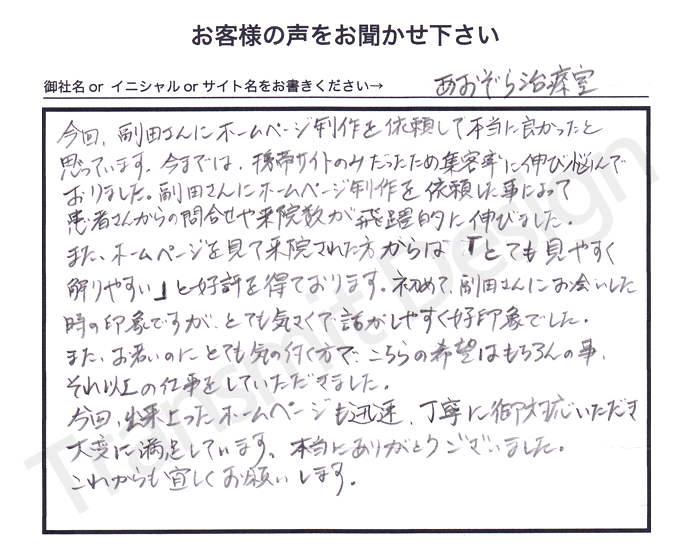 お客様の声をお聞かせ下さい
御社名 or イニシャル or サイト名をお書きください→ あおぞら治療室
今回、副田さんにホームページ制作を依頼して本当に良かったと
思っています。今までは、携帯サイトのみだったため集客率に伸び悩んで
おりました。副田さんにホームページ制作を依頼した事によって
患者さんからの問合せや来院数が飛躍的に伸びました。
また、ホームページを見て来院された方からは「とても見やすく
解りやすい」と好評を得ております。初めて、副田さんにお会いした
時の印象ですが、とても気さくで話がしやすく好印象でした。
また、お若いのにとても気の付く方で、こちらの希望はもちろんの事、
それ以上の仕事をしていただきました。
今回、出来上ったホームページも迅速、丁寧に御対応いただき
大変に満足しています。本当にありがとうございました。
これからも宜しくお願いします。
Transmit Design